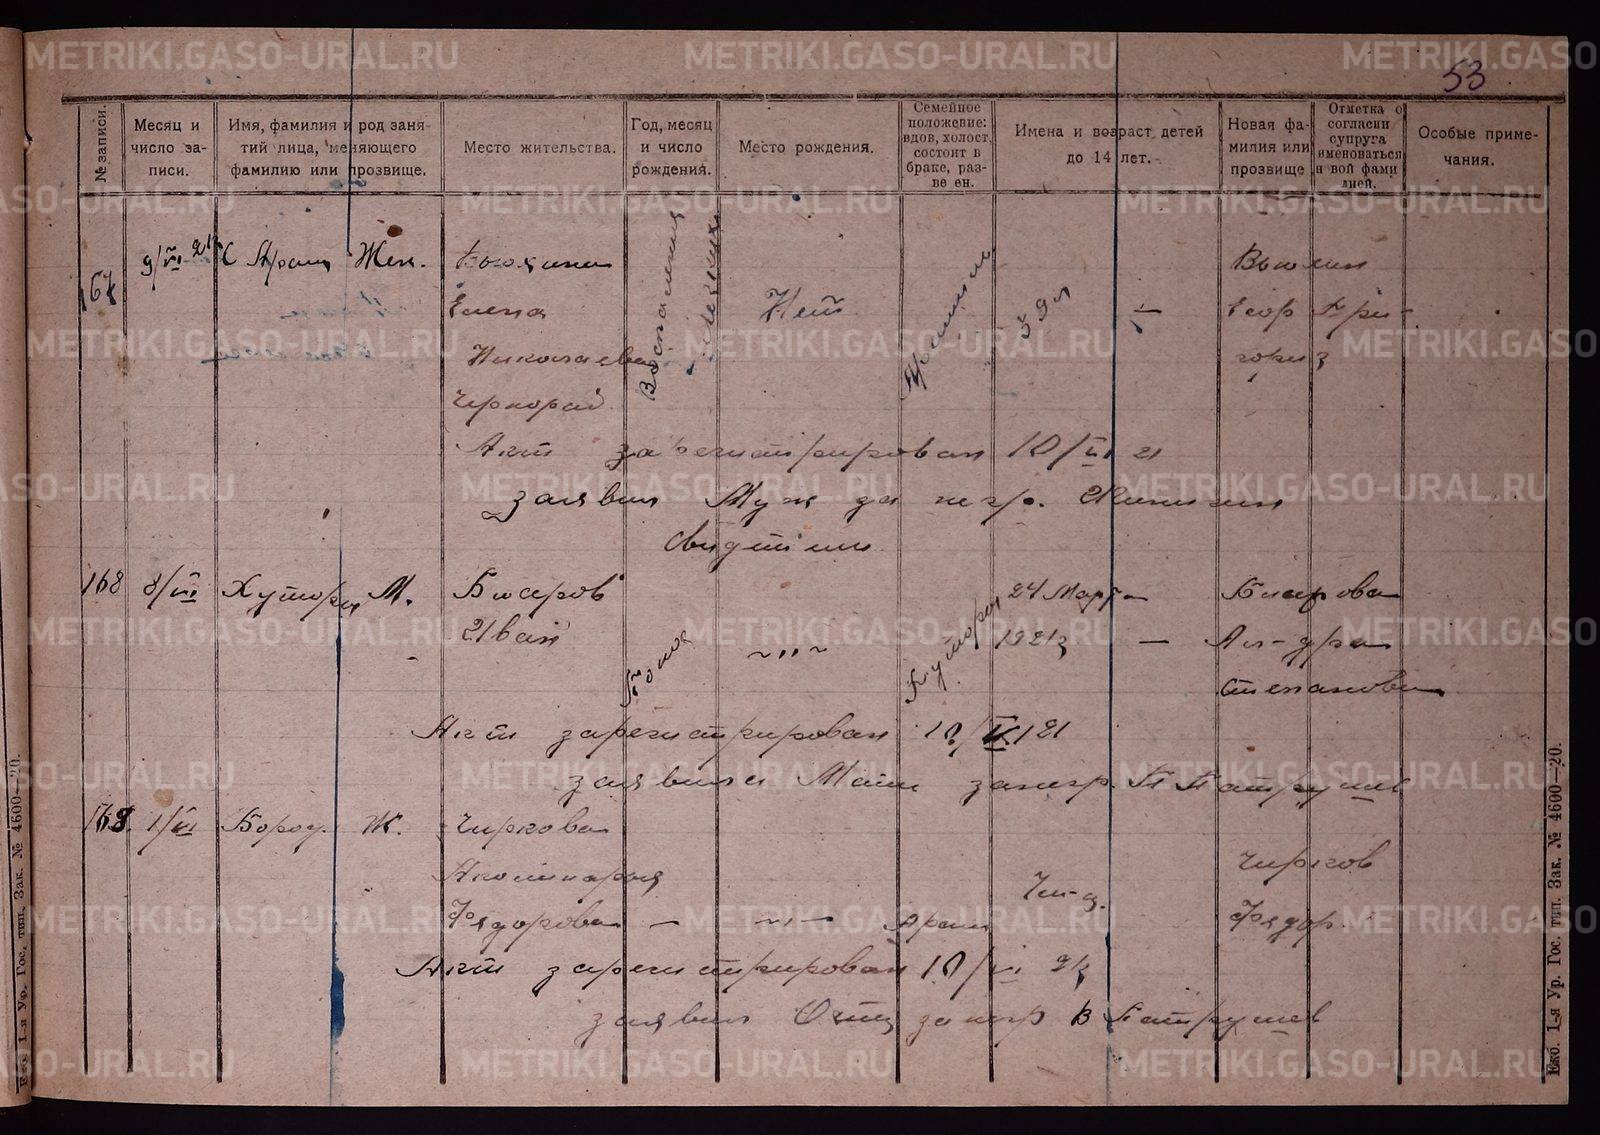 53
№ записи.
Месяц и число за- писи.
Имя, фамилия и род заня- тий лица, меняющего фамилию или прозвище.
Место жительства.
Год, месяц и число рождения.
Место рождения.
Семейное положение: вдов, холост, состоит в браке, раз- ве ен.
Имена и возраст детей до 14 лет.
Новая фа- милия или прозвище
Отметка о согласии супруга именоваться н вой фами лией.
Особые приме- чания.
167
9/VI 21
С Арам. Жен.
Вьюхина
Елена
Николаева
Воспаления
легких
Нет
39 л
—
Вьюхин
Егор Гри-
горьев
Черкорай
Акт зарегистрирован 10/VI 21
заявил Муж за негр.
Свидетели
168 8/VI Хутора М.
Бисеров
Иван
Понос
Хутора
24 Марта
1921 г
—
Бисерова
Ал-дра
Степанова
Акт зарегистрирован 10/VI 21
заявила Мать за негр. Патрушев
169. 1/VI Бород. Ж.
Чиркова
Аполинария
Федорова —
Арам
Чирков
Федор.
Акт зарегистрирован 10/VI 21
заявил Отец за негр В Патрушев
Екб. 1-я Ур. Гос. тип. Зак. № 4600—20.
Екб. 1-я Ур. Гос. тип. Зак. № 4600—20.
METRIKI.GASO-URAL.RU